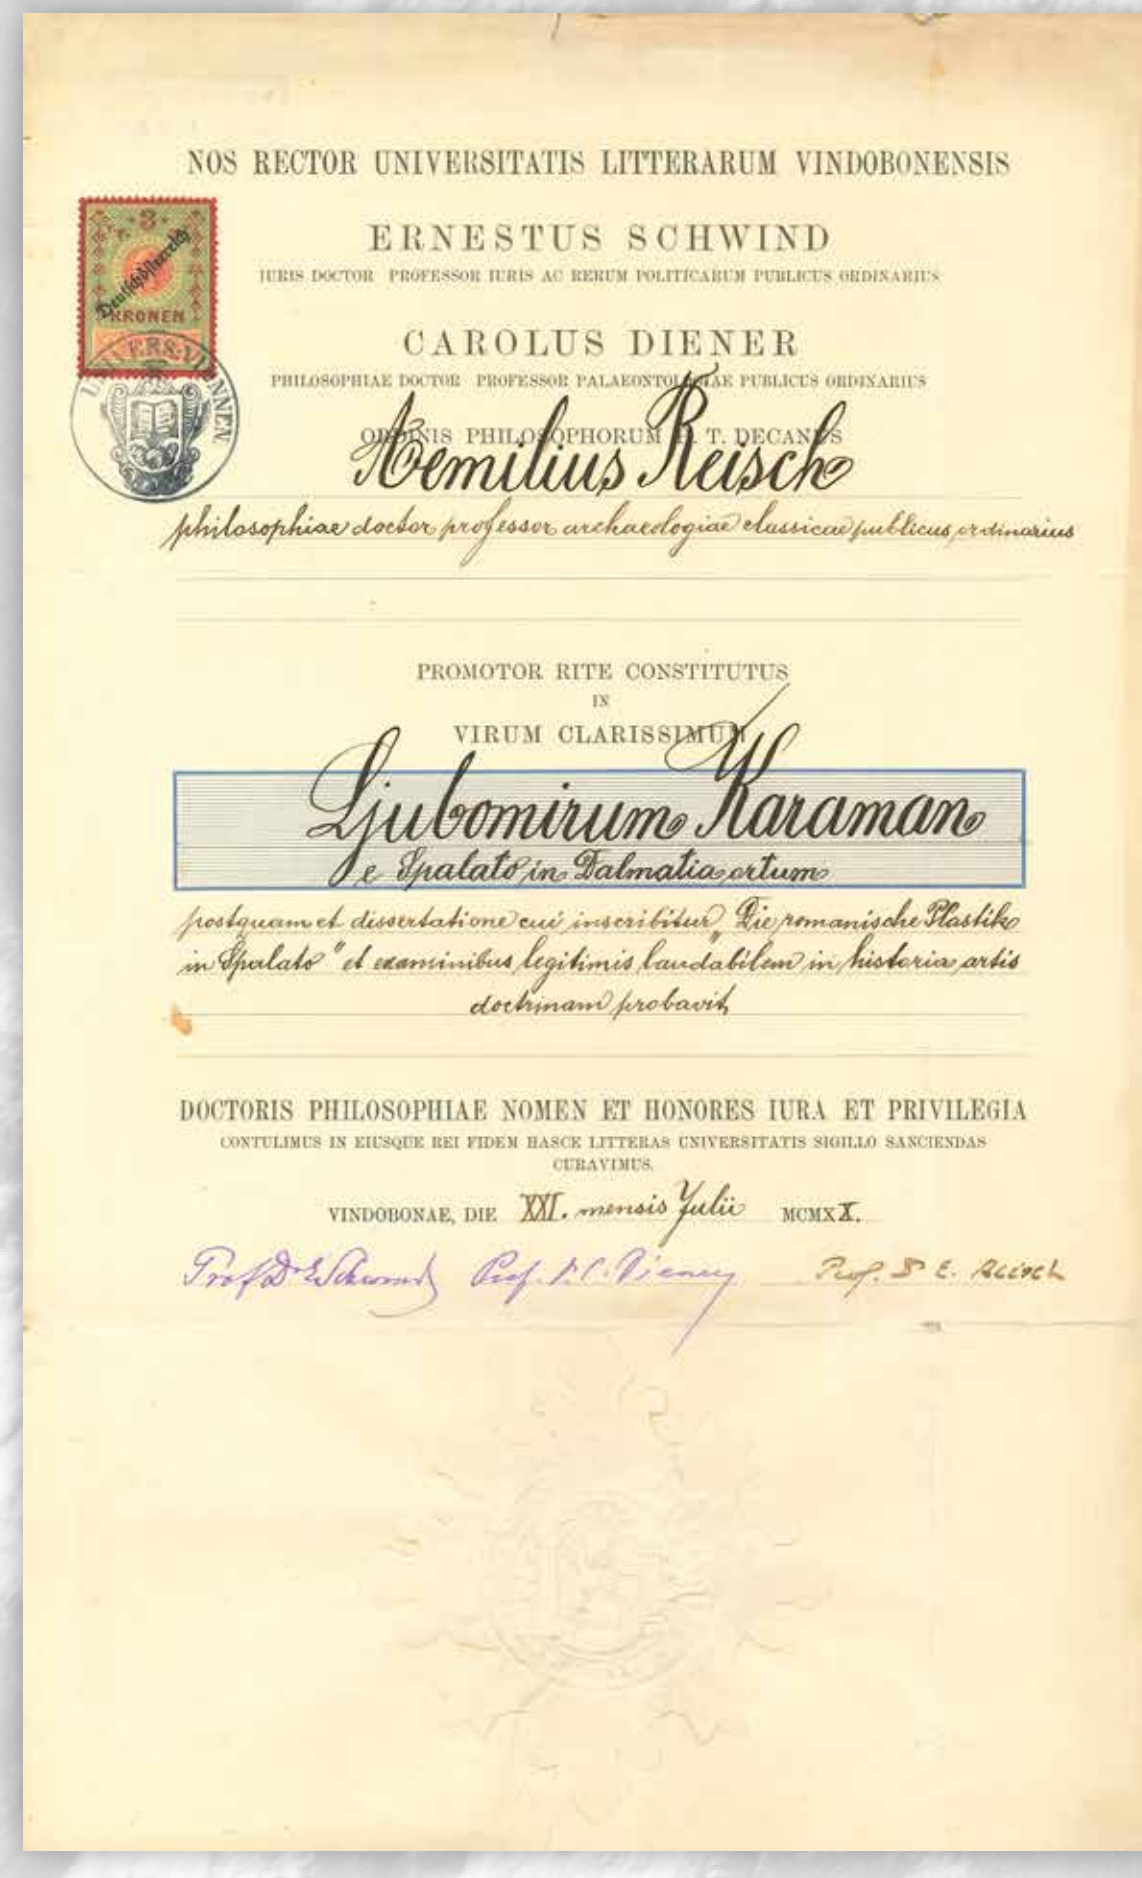 NOS RECTOR UNIVERSITATIS LITTERARUM VINDOBONENSIS
3
Deutschösterreich
KRONEN
ERNESTUS SCHWIND
IURIS DOCTOR PROFESSOR IURIS AC RERUM POLITICARUM PUBLICUS ORDINARIUS
CAROLUS DIENER
PHILOSOPHIAE DOCTOR PROFESSOR PALAEONTOLOGIAE PUBLICUS ORDINARIUS
ORDINIS PHILOSOPHORUM P. T. DECANUS
Aemilius Reisch
philosophiae doctor professor archaeologiae classicae publicus ordinarius
PROMOTOR RITE CONSTITUTUS
IN
VIRUM CLARISSIMUM
Ljubomirum Karaman
e Spalato in Dalmatia ortum
postquam et dissertatione cui inscribitur „Die romanische Plastik
in Spalato" et examinibus legitimis laudabilem in historia artis
doctrinam probavit
DOCTORIS PHILOSOPHIAE NOMEN ET HONORES IURA ET PRIVILEGIA
CONTULIMUS IN EIUSQUE REI FIDEM HASCE LITTERAS UNIVERSITATIS SIGILLO SANCIENDAS
CURAVIMUS.
VINDOBONAE, DIE XXI. mensis Julii MCMXX.
Prof. Dr E Schwind Prof. Dr. C. Diener Prof. D E. Reisch